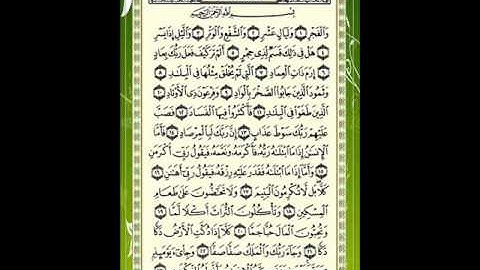 بِسْمِ اللَّهِ الرَّحْمَٰنِ الرَّحِيمِ
وَالْفَجْرِ ١ وَلَيَالٍ عَشْرٍ ٢ وَالشَّفْعِ وَالْوَتْرِ ٣ وَاللَّيْلِ إِذَا يَسْرِ
٤ هَلْ فِي ذَٰلِكَ قَسَمٌ لِذِي حِجْرٍ ٥ أَلَمْ تَرَ كَيْفَ فَعَلَ رَبُّكَ بِعَادٍ
٦ إِرَمَ ذَاتِ الْعِمَادِ ٧ الَّتِي لَمْ يُخْلَقْ مِثْلُهَا فِي الْبِلَادِ ٨
وَثَمُودَ الَّذِينَ جَابُوا الصَّخْرَ بِالْوَادِ ٩ وَفِرْعَوْنَ ذِي الْأَوْتَادِ ١٠
الَّذِينَ طَغَوْا فِي الْبِلَادِ ١١ فَأَكْثَرُوا فِيهَا الْفَسَادَ ١٢ فَصَبَّ
عَلَيْهِمْ رَبُّكَ سَوْطَ عَذَابٍ ١٣ إِنَّ رَبَّكَ لَبِالْمِرْصَادِ ١٤ فَأَمَّا
الْإِنْسَانُ إِذَا مَا ابْتَلَاهُ رَبُّهُ فَأَكْرَمَهُ وَنَعَّمَهُ فَيَقُولُ رَبِّي أَكْرَمَنِ
١٥ وَأَمَّا إِذَا مَا ابْتَلَاهُ فَقَدَرَ عَلَيْهِ رِزْقَهُ فَيَقُولُ رَبِّي أَهَانَنِ ١٦
كَلَّا بَل لَا تُكْرِمُونَ الْيَتِيمَ ١٧ وَلَا تَحَاضُّونَ عَلَىٰ طَعَامِ
الْمِسْكِينِ ١٨ وَتَأْكُلُونَ التُّرَاثَ أَكْلًا لَمًّا ١٩
وَتُحِبُّونَ الْمَالَ حُبًّا جَمًّا ٢٠ كَلَّا إِذَا دُكَّتِ الْأَرْضُ دَكًّا
دَكًّا ٢١ وَجَاءَ رَبُّكَ وَالْمَلَكُ صَفًّا صَفًّا ٢٢ وَجِيءَ يَوْمَئِذٍ